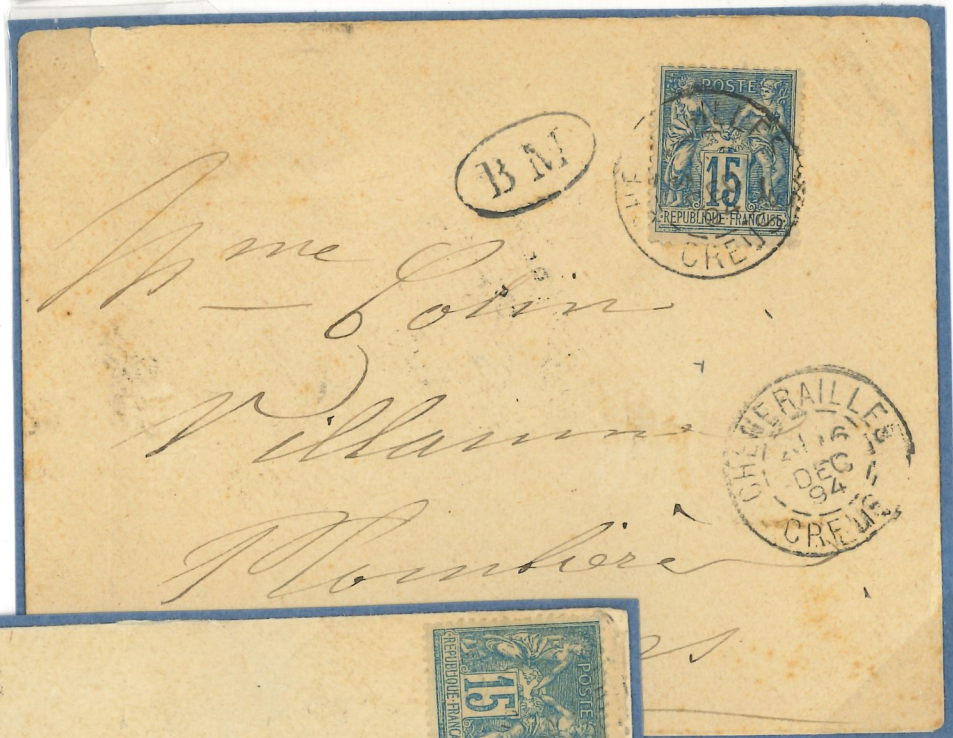 POSTE
15
REPUBLIQUE FRANÇAISE
CREUSE
B M
Mme Colin
Villa
Plombières
CHENERAILLES
16
DEC
94
CREUSE
POSTES
15
REPUBLIQUE FRANCA